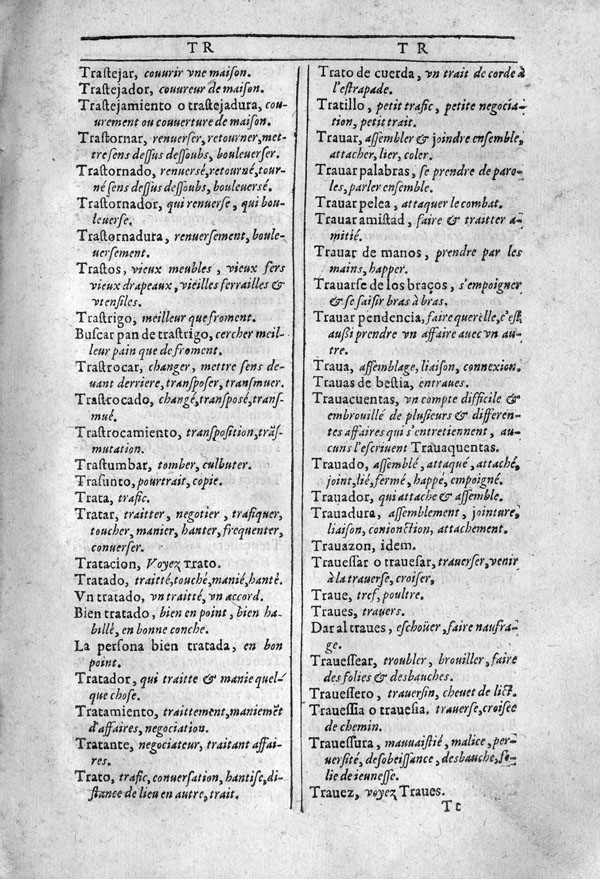 TR
Traſtejar, couurir vne maiſon.
Traſtejador, couureur de maiſon.
Traſtejamiento o traſtejadura, cou-
urement ou couuerture de maiſon.
Traſtornar, renuerſer, retourner, met-
tre ſens deſſus deſſoubs, bouleuerſer.
Traſtornado, renuerſé, retourné, tour-
né ſens deſſus deſſoubs, bouleuerſé.
Traſtornador, qui renuerſe, qui bou-
leuerſe.
Traſtornadura, renuerſement, boule-
uerſement.
Traſtos, vieux meubles, vieux fers
vieux drapeaux, vieilles ferrailles &
vtenſiles.
Traſtrigo, meilleur que froment.
Buſcar pan de traſtrigo, cercher meil-
leur pain que de froment.
Traſtrocar, changer, mettre ſens de-
uant derriere, tranſpoſer, tranſmuer.
Traſtrocado, changé, tranſpoſé, tranſ-
mué.
Traſtrocamiento, tranſpoſition, trãſ-
mutation.
Traſtumbar, tomber, culbuter.
Traſunto, pourtrait, copie.
Trata, trafic.
Tratar, traitter, negotier, trafiquer,
toucher, manier, hanter, frequenter,
conuerſer.
Tratacion, Voyez Trato.
Tratado, traitté, touché, manié, hanté.
Vn tratado, vn traitté, vn accord.
Bien tratado, bien en point, bien ha-
billé, en bonne conche.
La perſona bien tratada, en bon
point.
Tratador, qui traitte & manie quel-
que choſe.
Tratamiento, traittement, maniemẽt
d'affaires, negociation.
Tratante, negociateur, traitant affai-
res.
Trato, trafic, conuerſation, hantiſe, di-
ſtance de lieu en autre, trait.
TR
Trato de cuerda, vn trait de corde à
l'eſtrapade.
Tratillo, petit trafic, petite negocia-
tion, petit trait.
Trauar, aſſembler & joindre enſemble,
attacher, lier, coler.
Trauar palabras, ſe prendre de paro-
les, parler enſemble.
Trauar pelea, attaquer le combat.
Trauar amiſtad, faire & traitter a-
mitié.
Trauar de manos, prendre par les
mains, happer.
Trauarſe de los braços, s'empoigner
& ſe ſaiſir bras à bras.
Trauar pendencia, faire querelle, c'eſt
auſſi prendre vn affaire auec vn au-
tre.
Traua, aſſemblage, liaiſon, connexion.
Trauas de beſtia, entraues.
Trauacuentas, vn compte difficile &
embrouillé de pluſieurs & differen-
tes affaires qui s'entretiennent, au-
cuns l'eſcriuent Trauaquentas.
Trauado, aſſemblé, attaqué, attaché,
joint, lié, fermé, happé, empoigné.
Trauador, qui attache & aſſemble.
Trauadura, aſſemblement, jointure,
liaiſon, conionction, attachement.
Trauazon, idem.
Traueſſar o traueſar, trauerſer, venir
à la trauerſe, croiſer.
Traue, tref, poultre.
Traues, trauers.
Dar al traues, eſchoüer, faire naufra-
ge.
Traueſſear, troubler, brouiller, faire
des folies & desbauches.
Traueſſero, trauerſin, cheuet de lict.
Traueſſia o traueſia. trauerſe, croiſee
de chemin.
Traueſſura, mauuaiſtié, malice, per-
uerſité, deſobeiſſance, desbauche, fo-
lie de ieuneſſe.
Trauez, voyez Traues.
Tc